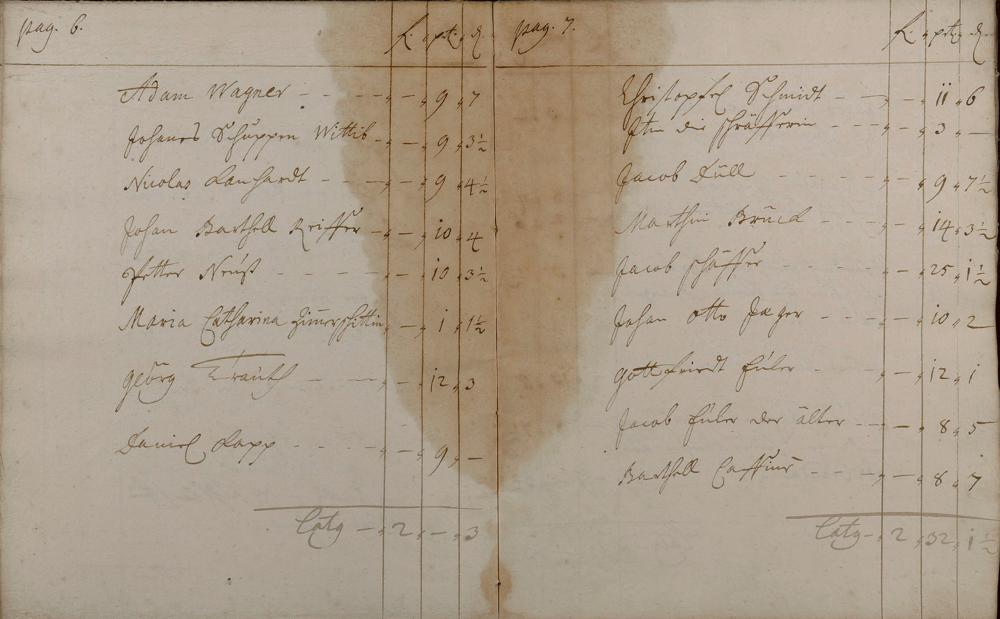 pag. 6.
f. ptz. d.
Adam Wagner - - - - 9. 7
Johanes Schuppen Wittib - - 9. 3½
Nicolas Lanhardt - - - 9 4½
Johan Barthell - - 10. 4
Petter Neuß - - - - 10 3½
Maria Catharina - - 1. 1½
Georg Trauth - - - 12. 3
Daniel Lapp - - - - 9. -
Latq - 2. - 3
pag. 7.
f. ptz. d.
Christopfel Schmidt - - - 11. 6
Jtem die schäfferin - - - 3. -
Jacob Düll - - - - 9. 7½
Marthin Brück - - - 14. 3½
Jacob schäffer - - - 25. 1½
Johan otto Jæger - - - 10. 2
gottfriedt Euler - - - 12. 1
Jacob Euler der älter - - - 8. 5
Barthell - - - 8. 7
Latq - 2. 32. 1½